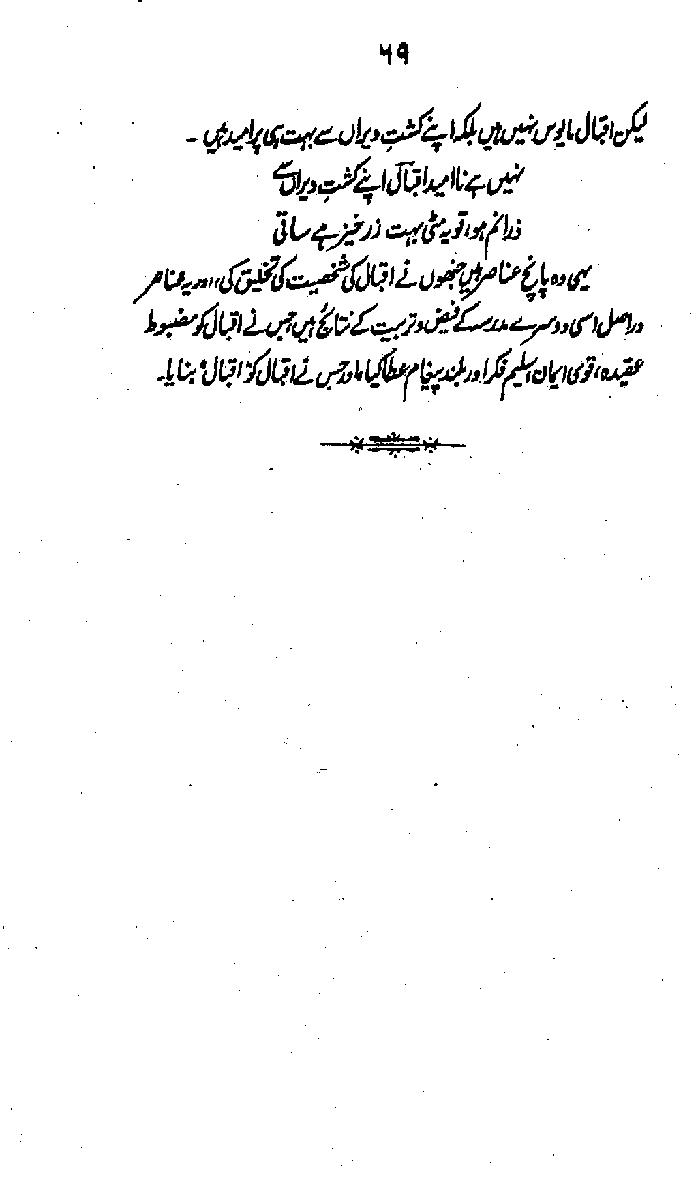 ۶۹
لیکن اقبال مایوس نہیں ہیں بلکہ اپنے کشتِ ویراں سے بہت ہی پر امید ہیں ۔
نہیں ہے نا امید اقبالؔ اپنے کشتِ ویراں سے
ذرا نم ہو، تو یہ مٹی بہت زرخیز ہے ساقی
یہی وہ پانچ عناصر ہیں جنھوں نے اقبال کی شخصیت کی تخلیق کی، اور یہ عناصر
دراصل اسی دوسرے مدرسہ کے فیض و تربیت کے نتائج ہیں جس نے اقبال کو مضبوط
عقیدہ، قوی ایمان، سلیم فکر اور بلند پیغام عطا کیا، اور جس نے اقبال کو "اقبال" بنایا۔